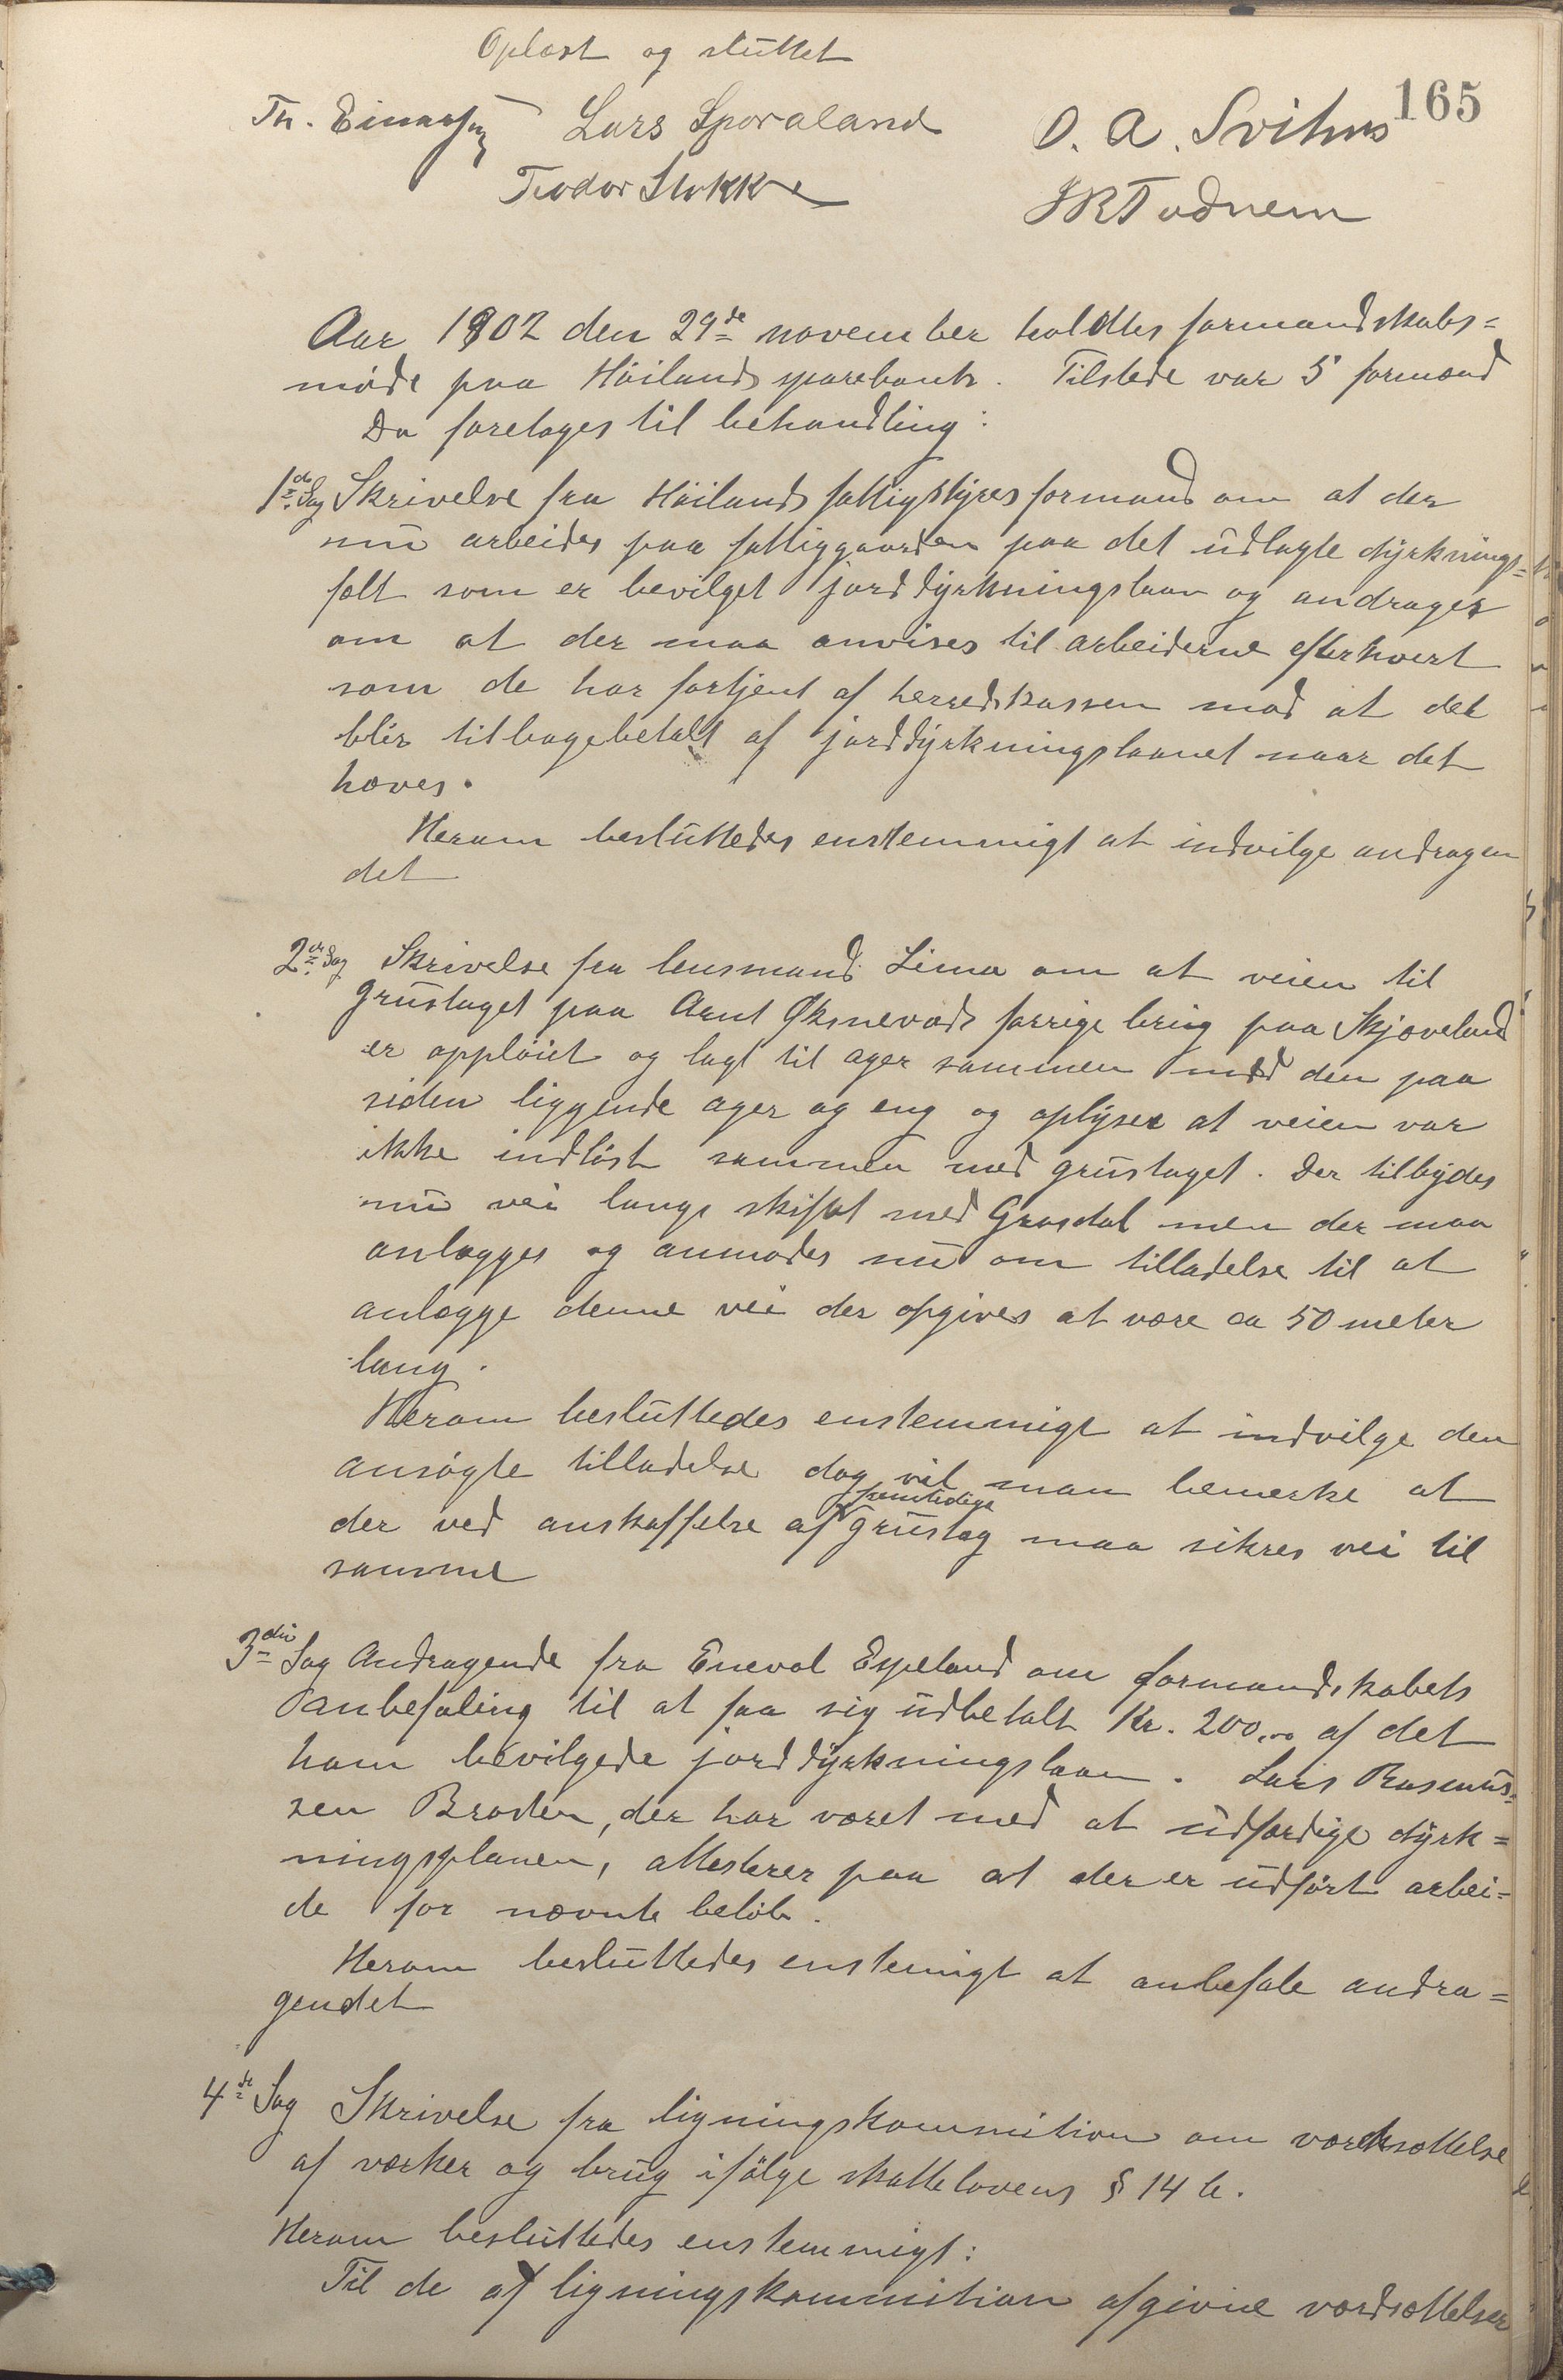 Oplæst og sluttet
165
Th. Einarsen Lars Sporaland O. A. Svihus
Teodor Stokke J R Tudnem
Aar 1902 den 29de november holdtes formandskabs=
møde paa Høilands sparebank. Tilstede var 5 formænd
Da foretoges til behandling:
1ste Sag Skrivelse fra Høilands fattigstyres formand om at der
nu arbeides paa fattiggaarden paa det udlagte dyrknings=
felt som er bevilget jorddyrkningslaan og andrages
om at der maa anvises til arbeiderne efterhvert
som de har fortjent af herredskassen mod at det
blir tilbagebetalt af jorddyrkningslaanet naar det
hæves.
Herom besluttedes enstemmigt at indvilge andragen
det
2den Sag Skrivelse fra lensmand Lima om at veien til
grustaget paa Arnt Øksnevads forrige brug paa Skjæveland
er oppløiet og lagt til ager sammen med den paa
siden liggende ager og eng og oplyser at veien var
ikke indløst sammen med grustaget. Der tilbydes
nu vei langs skiftet med Grasdal men der maa
anlægges og anmodes nu om tilladelse til at
anlægge denne vei der opgives at være ca 50 meter
lang.
Herom besluttedes enstemmigt at indvilge den
ansøgte tilladelse dog vil man bemerke at
der ved anskaffelse af fremtidige grustag maa sikres vei til
samme
3die Sag Andragende fra Enevol Espeland om formandskabets
anbefaling til at faa sig udbetalt Kr. 200.00 af det
ham bevilgede jorddyrkningslaan. Lars Rasmus-
sen Braaten, der har været med at udfærdige dyrk=
ningsplanen, attesterer paa at der er udført arbei=
de for nævnte beløb.
Herom besluttedes enstemigt at anbefale andra=
gendet
4de Sag Skrivelse fra ligningskommition om værdsættelse
af værker og brug ifølge skattelovens § 14 b.
Herom besluttedes enstemmigt:
Til de af ligningskommition afgivne værdsættelser